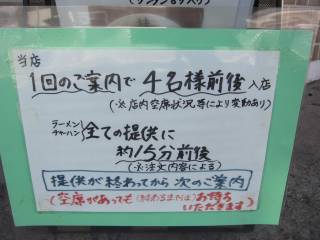 当店
1回のご案内で4名様前後入店
(※店内空席状況等により変動あり)
ラーメン
チャーハン 全ての提供に
約15分前後
(※注文内容による)
提供が終わってから次のご案内
(空席があっても(終わるまでは)お待ち
いただきます)